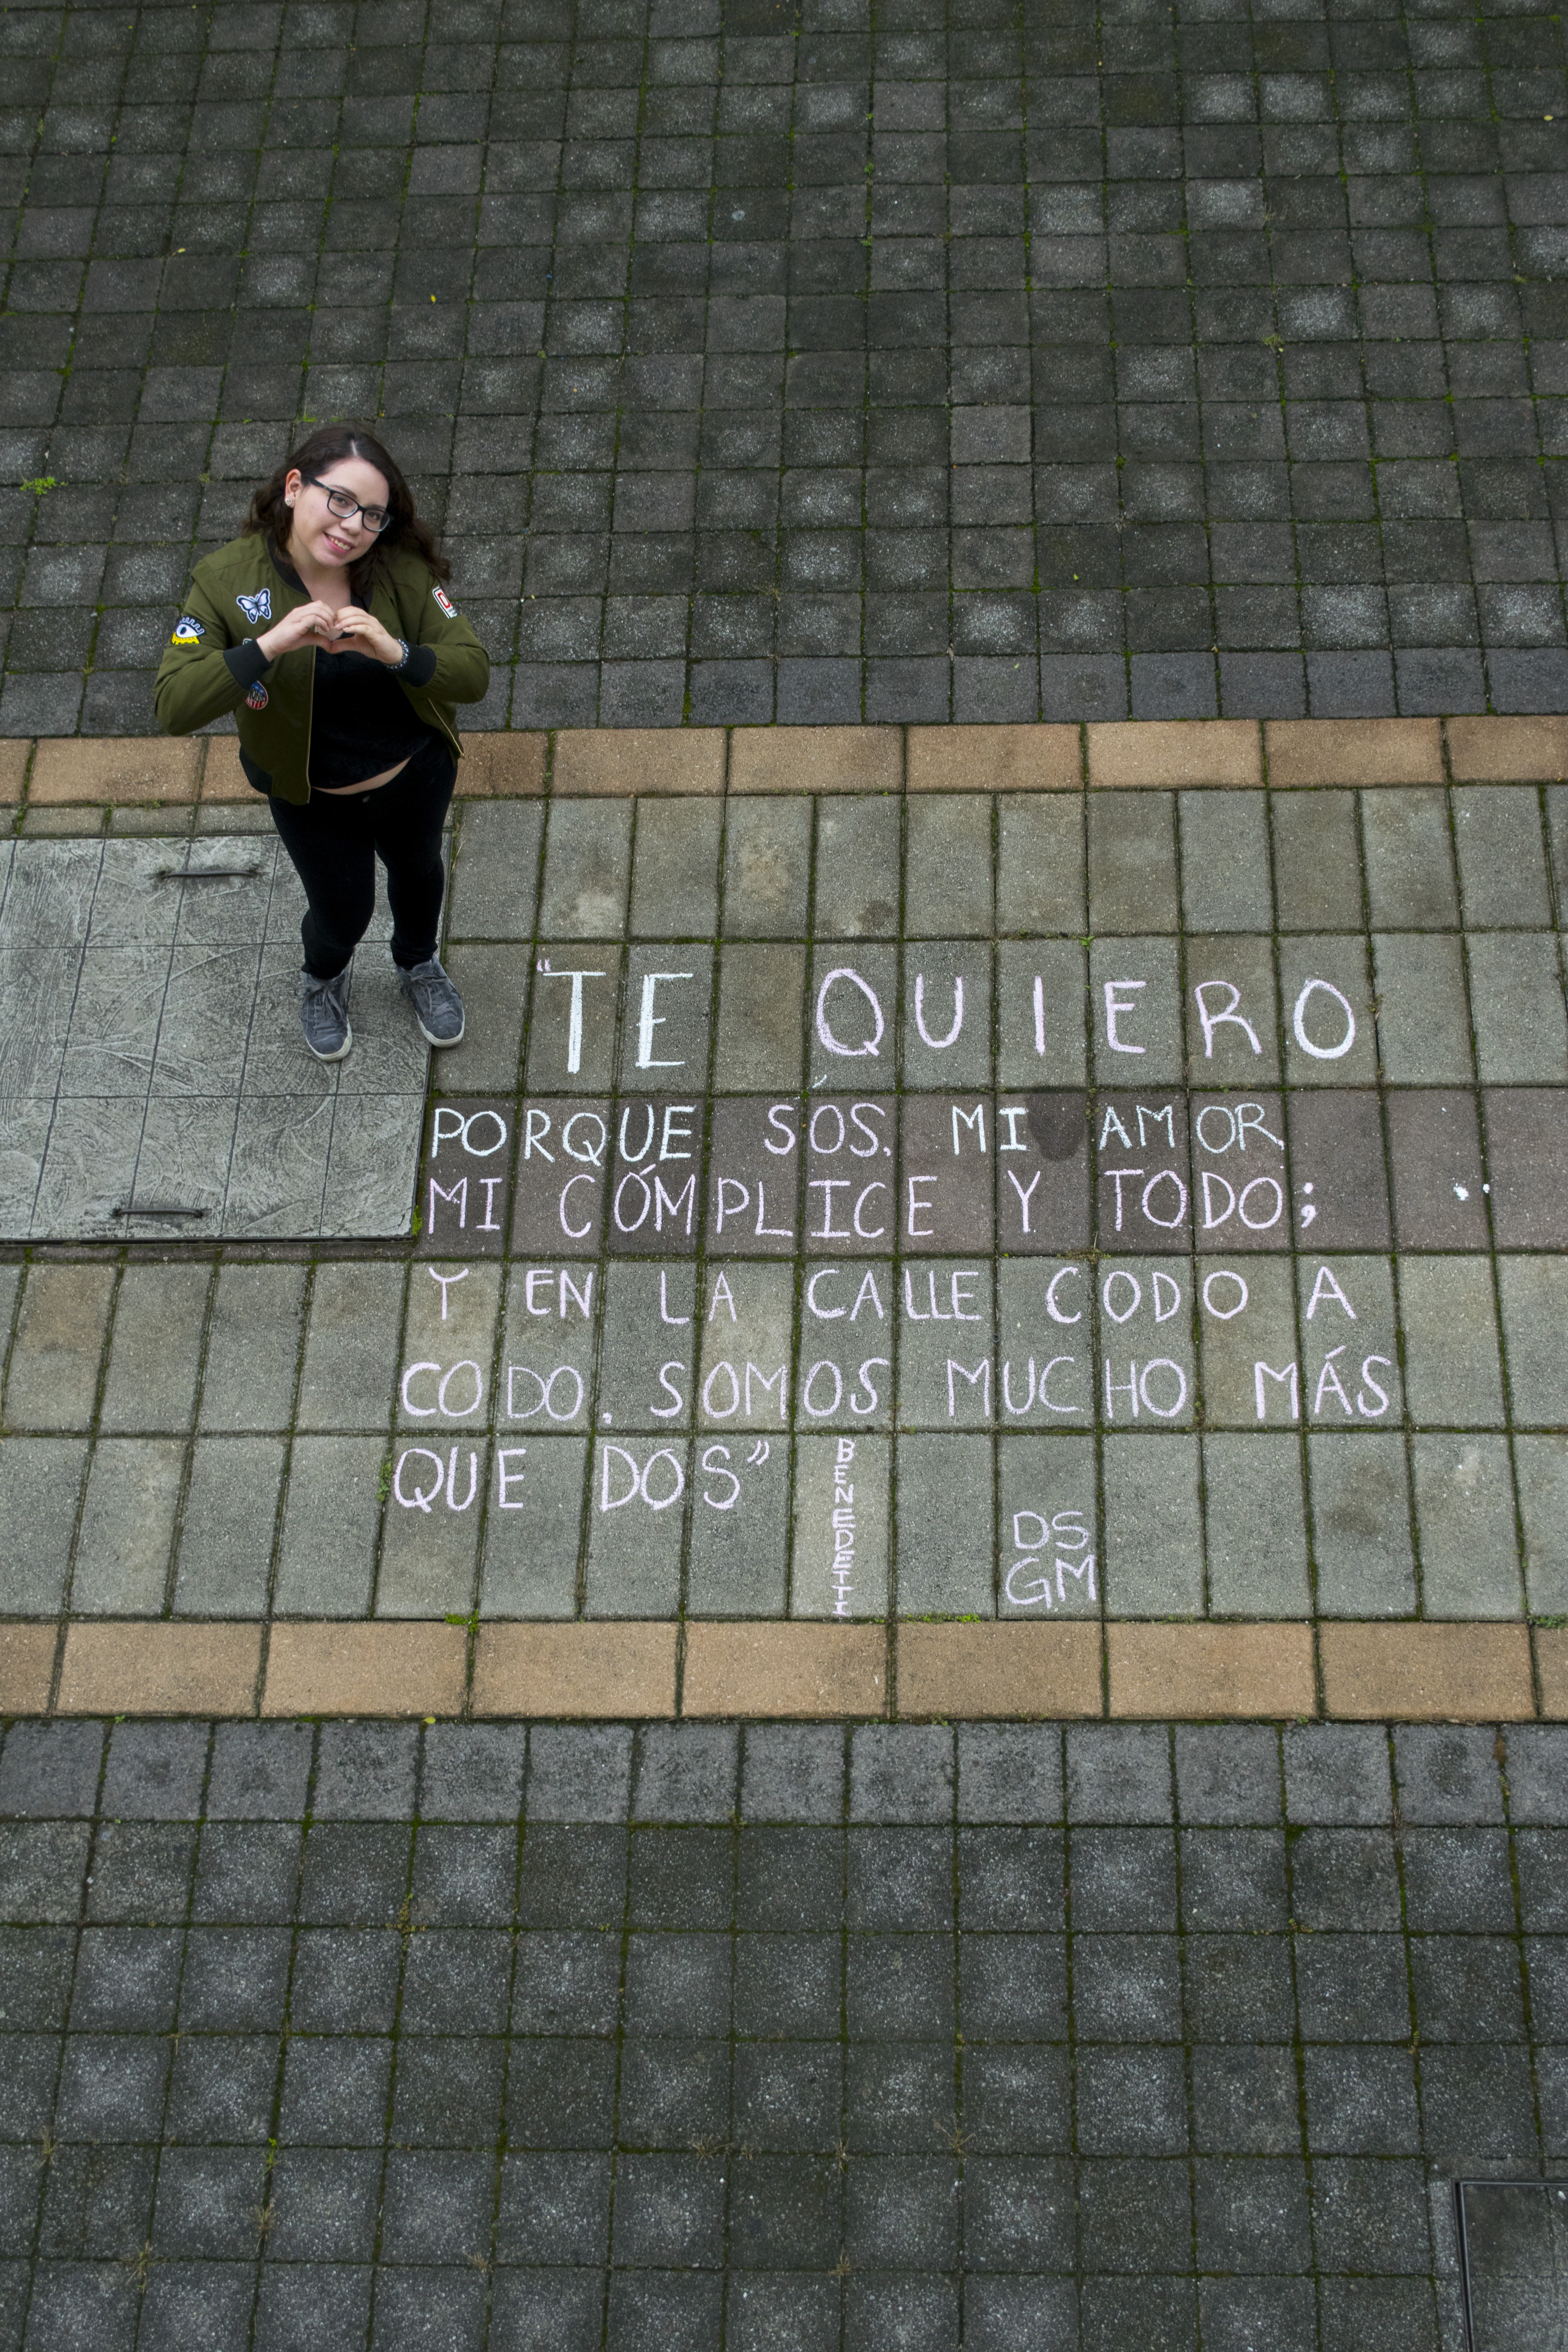 "TE QUIERO
PORQUE SÓS. MI AMOR,
MI CÓMPLICE Y TODO;
Y EN LA CALLE CODO A
CODO. SOMOS MUCHO MÁS
QUE DOS"
BENEDETTI
DS
GM